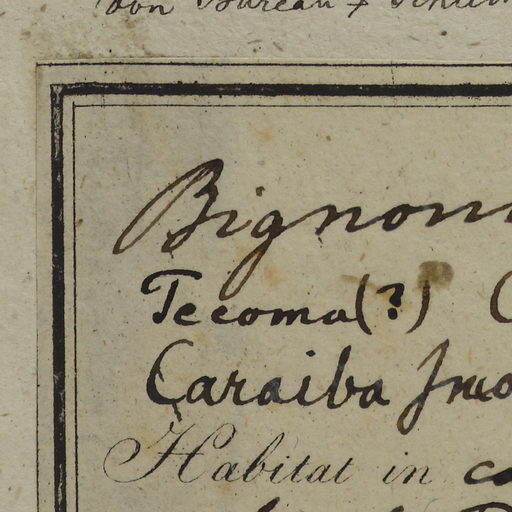 von Bureau &
Bignon
Tecoma (?) C
Caraiba
Habitat in ca